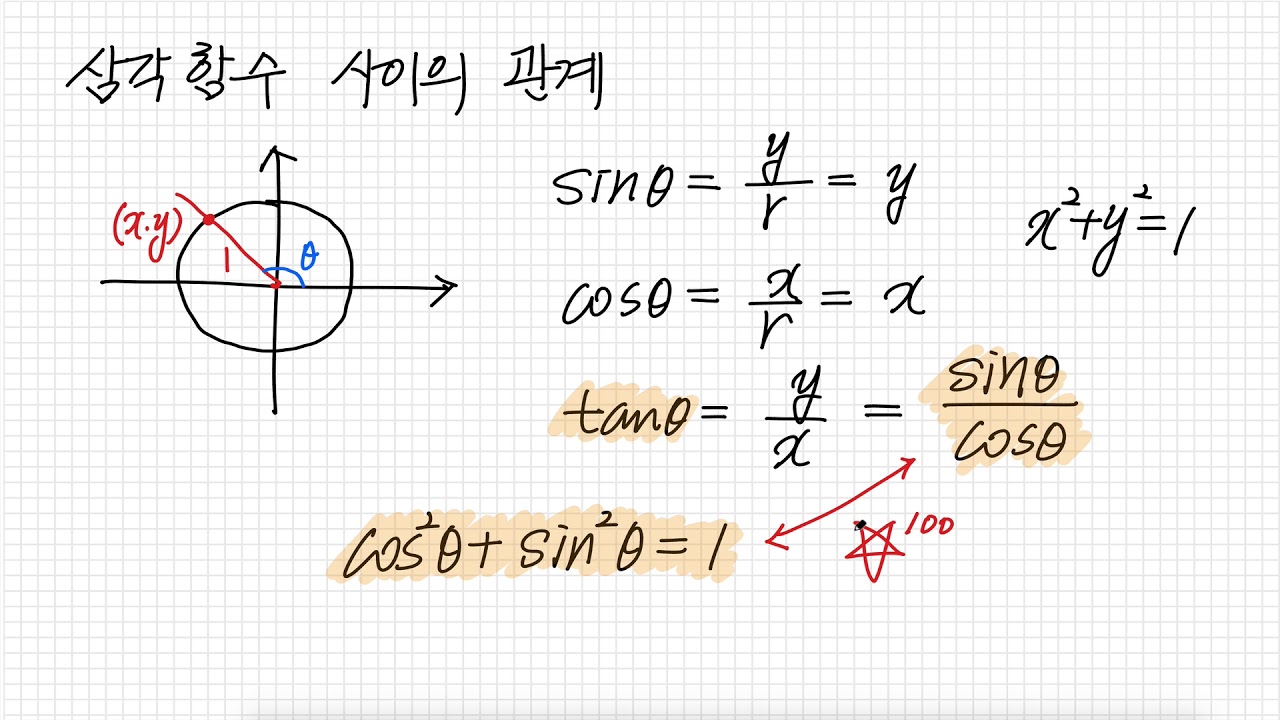 삼각함수 사이의 관계
(x.y)
1
θ
sinθ = y/r = y
x²+y²=1
cosθ = x/r = x
tanθ = y/x = sinθ/cosθ
cos²θ + sin²θ = 1
☆¹⁰⁰